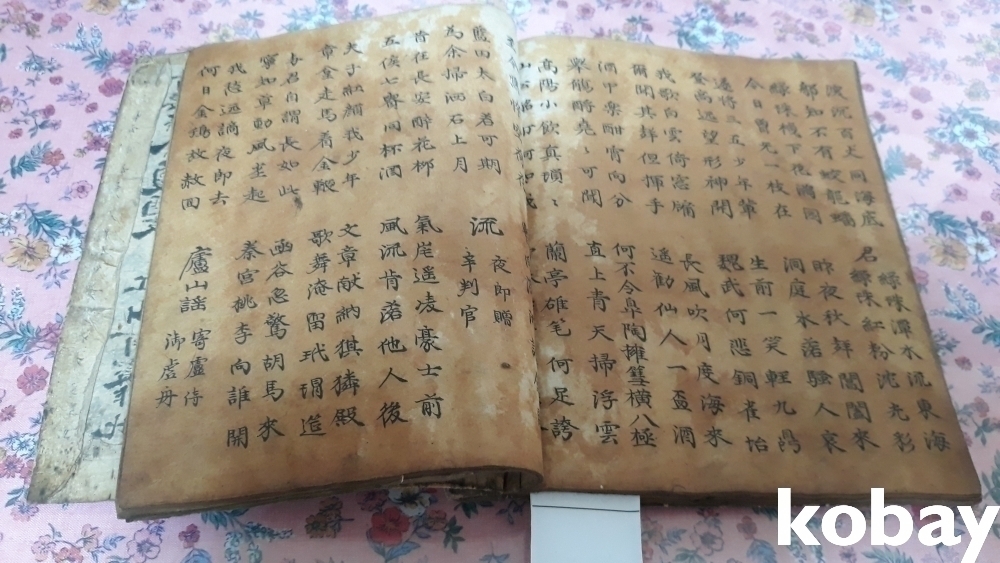 深沉百丈洞海底
那知不有蛟龍蟠
綠珠潭水流東海
綠珠紅粉沈光彩
綠珠樓下花滿園
今日曾無一枝在
昨夜秋聲閶闔來
洞庭木落騷人哀
遂將三五少年輩
登高遠望形神開
生前一笑輕九鼎
魏武何悲銅雀坮
我歌白雲倚窓牖
爾聞其聲但揮手
長風吹月度海來
遙勸仙人一盃酒
酒中樂酣宵向分
舉觴酹堯々可聞
何不令皐陶擁篲橫八極
直上青天掃浮雲
高陽小飲真瑣々
蘭亭雄笔何足誇
藍田太白若可期
為余掃洒石上月
流夜郎贈辛判官
昔在長安醉花柳
五侯七貴同杯酒
氣岸遙凌豪士前
風流肯落他人後
夫子紅顔我少年
章坮走馬着金鞭
文章献納猉獜殿
歌舞淹留玳瑁筵
与君自謂長如此
寧知草動風塵起
函谷忽驚胡馬來
秦宮桃李向誰開
我愁遠謫夜郎去
何日金鷄放赦回
廬山謠 寄盧侍御虛舟
kobay